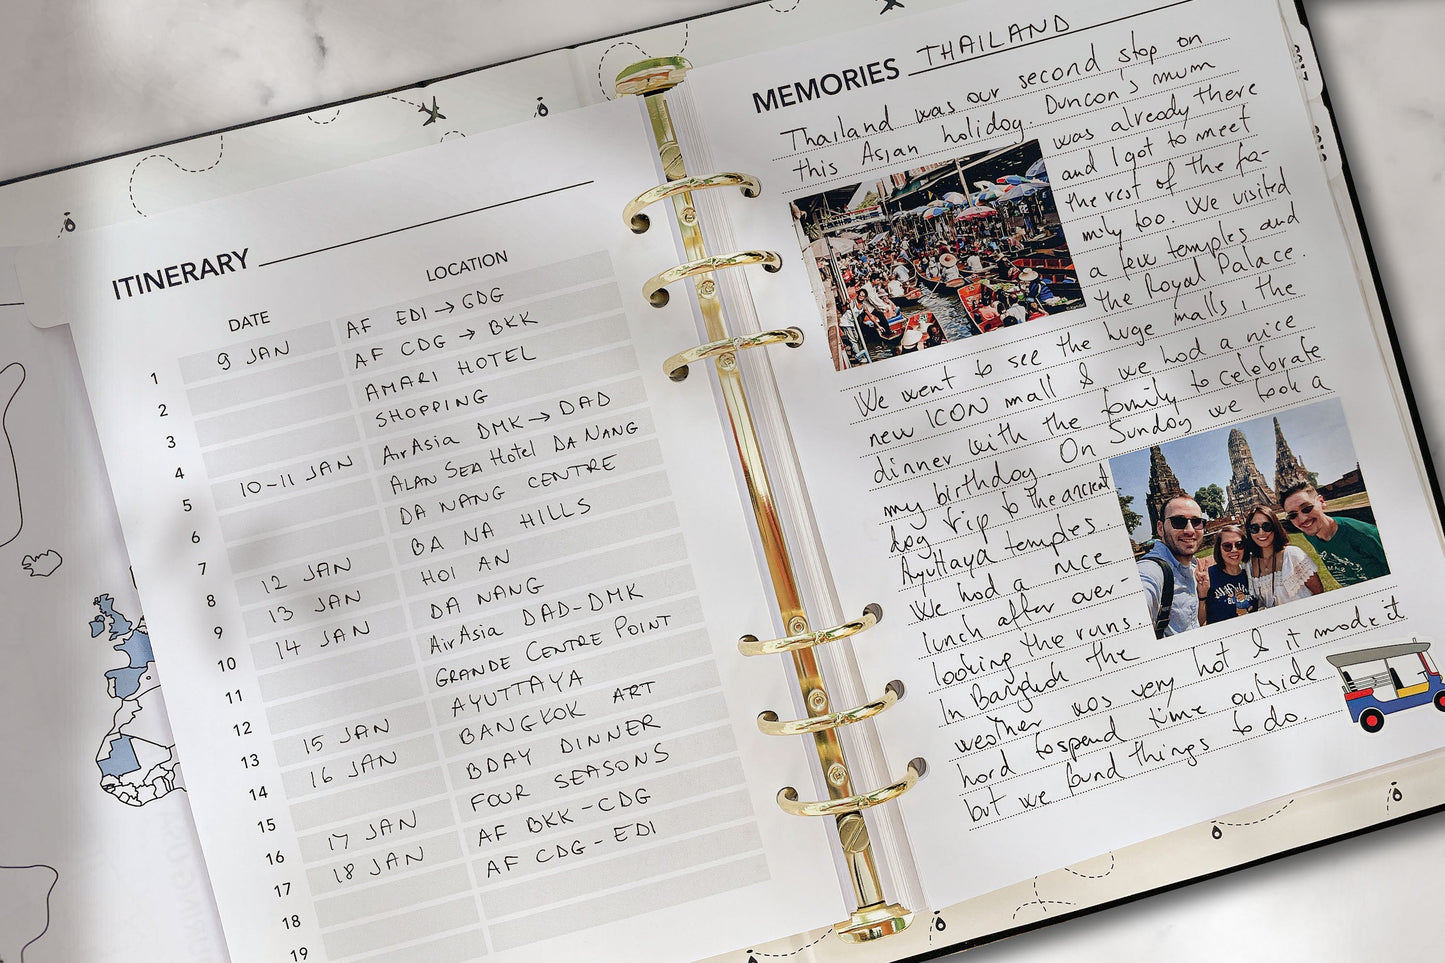 ITINERARY
DATE LOCATION
1 9 JAN AF EDI → CDG
2 AF CDG → BKK
3 AMARI HOTEL
4 SHOPPING
5 10-11 JAN AirAsia DMK → DAD
6 ALAN SEA Hotel DA NANG
7 DA NANG CENTRE
8 12 JAN BA NA HILLS
9 13 JAN HOI AN
10 14 JAN DA NANG
11 AirAsia DAD-DMK
12 GRANDE CENTRE POINT
13 15 JAN AYUTTAYA
14 16 JAN BANGKOK ART
15 BDAY DINNER
16 17 JAN FOUR SEASONS
17 18 JAN AF BKK-CDG
18 AF CDG - EDI
19
MEMORIES THAILAND
Thailand was our second stop on
this Asian holiday. Duncan's mum
was already there
and I got to meet
the rest of the fa-
mily too. We visited
a few temples and
the Royal Palace.
We went to see the huge malls, the
new ICON mall & we had a nice
dinner with the family to celebrate
my birthday. On Sunday we took a
day trip to the ancient
Ayuttaya temples.
We had a nice
lunch after over-
looking the ruins.
In Bangkok the
weather was very hot & it made it
hard to spend time outside
but we found things to do.